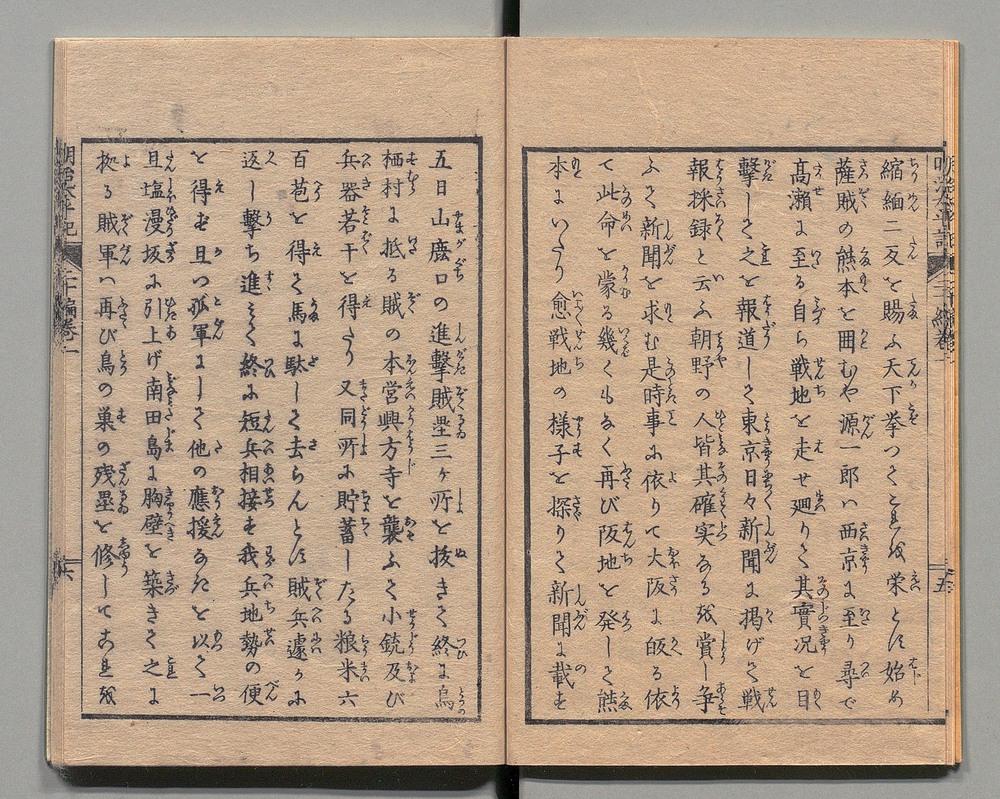 縮緬二反を賜ふ天下挙つてこれを栄とは始め
薩賊の熊本を囲むや源一郎ハ西京に至り尋で
高瀬に至る自ら戦地を走せ廻りて其實况を目
擊して之を報道して東京日々新聞に掲げて戦
報採録と云ふ朝野の人皆其確実なるを賞し争
ふて新聞を求む是時事に依りて大阪に皈る依
て此命を蒙る幾くもなく再び阪地を発して熊
本にいたり愈戦地の様子を探りて新聞に載す
五
五日山鹿口の進擊賊塁三ヶ所を抜きて終に鳥
栖村に抵る賊の本営興方寺を襲ふて小銃及び
兵器若干を得たり又同所に貯蓄したる粮米六
百苞を得て馬に駄して去らんとは賊兵遽かに
返し擊ち進みて終に短兵相接す我兵地勢の便
を得ず且つ孤軍にして他の應援なきを以て一
旦塩漫坂に引上げ南田島に胸壁を築きて之に
拠る賊軍ハ再び鳥の巣の残塁を修してこれを
明治太平記 二十編巻一
六